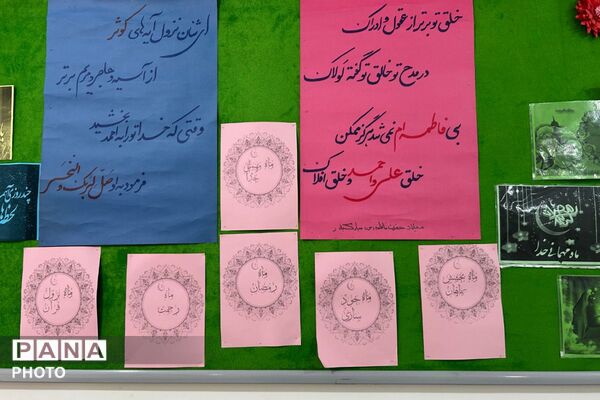 ای شأن نزول آیه‌های کوثر
از آسیه و هاجر و مریم برتر
وقتی که خدا تو را به احمد بخشید
فرمود به او فصل لربک وانحر
خلق تو برتر از عقول و ادراک
در مدح تو خالق تو گفته لولاک
بی فاطمه‌ام نمی‌شد هرگز ممکن
خلق علی و احمد و خلق افلاک
ماه
ماه نزول
قرآن
ماه
رحمت
ماه
رمضان
ماه خود
سازی
ماه بخشش
گناهان
چند روز با
ماه مهمانی خدا
PANA
PHOTO